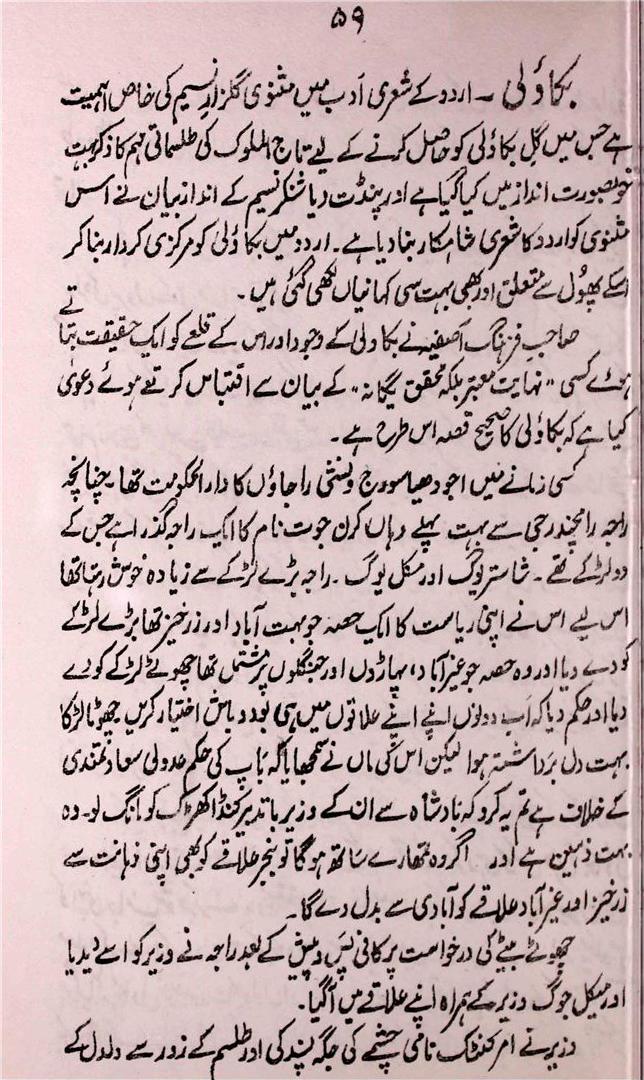 ۵۹
بکاؤلی ۔ اردو کے شعری ادب میں مثنوی گلزارِ نسیم کی خاص اہمیت
ہے جس میں گل بکاؤلی کو حاصل کرنے کے لیے تاج الملوک کی طلسماتی مہم کا ذکر بہت
خوبصورت انداز میں کیا گیا ہے اور پنڈت دیا شنکر نسیم کے انداز بیان نے اس
مثنوی کو اردو کا شعری شاہکار بنا دیا ہے۔ اردو میں بکاؤلی کو مرکزی کردار بنا کر
اسکے پھول سے متعلق اور بھی بہت سی کہانیاں لکھی گئی ہیں۔
صاحب فرہنگ آصفیہ نے بکاولی کے وجود اور اس کے قلعے کو ایک حقیقت بتاتے
ہوئے کسی "نہایت معتبر بلکہ محقق یگانہ" کے بیان سے اقتباس کرتے ہوئے دعویٰ
کیا ہے کہ بکاؤلی کا صحیح قصہ اس طرح ہے۔
کسی زمانے میں اجودھیا سورج ونشی راجاؤں کا دارالحکومت تھا۔ چنانچہ
راجہ رامچندر جی سے بہت پہلے وہاں کرن جوت نام کا ایک راجہ گذرا ہے جس کے
دو لڑکے تھے۔ شاستر یوگ اور مکل یوگ۔ راجہ بڑے لڑکے سے زیادہ خوش رہتا تھا
اس لیے اس نے اپنی ریاست کا ایک حصہ جو بہت آباد اور زرخیز تھا بڑے لڑکے
کو دے دیا اور وہ حصہ جو غیر آباد، پہاڑوں اور جنگلوں پر مشتمل تھا چھوٹے لڑکے کو دے
دیا اور حکم دیا کہ اب دونوں اپنے اپنے علاقوں میں ہی بود و باش اختیار کریں۔ چھوٹا لڑکا
بہت دل برداشتہ ہوا لیکن اس کی ماں نے سمجھایا کہ باپ کی حکم عدولی سعادتمندی
کے خلاف ہے تم یہ کرو کہ بادشاہ سے ان کے وزیر باتدبیر کنڈا کھڑک کو مانگ لو۔ وہ
بہت ذہین ہے اور اگر وہ تمھارے ساتھ ہو گا تو بنجر علاقے کو بھی اپنی ذہانت سے
زرخیز اور غیر آباد علاقے کو آبادی سے بدل دے گا۔
چھوٹے بیٹے کی درخواست پر کافی پس و پیش کے بعد راجہ نے وزیر کو اسے دیدیا
اور میکل جوگ وزیر کے ہمراہ اپنے علاقے میں آ گیا۔
وزیر نے امر کنٹک نامی چشمے کی جگہ پسند کی اور طلسم کے زور سے دلدل کے